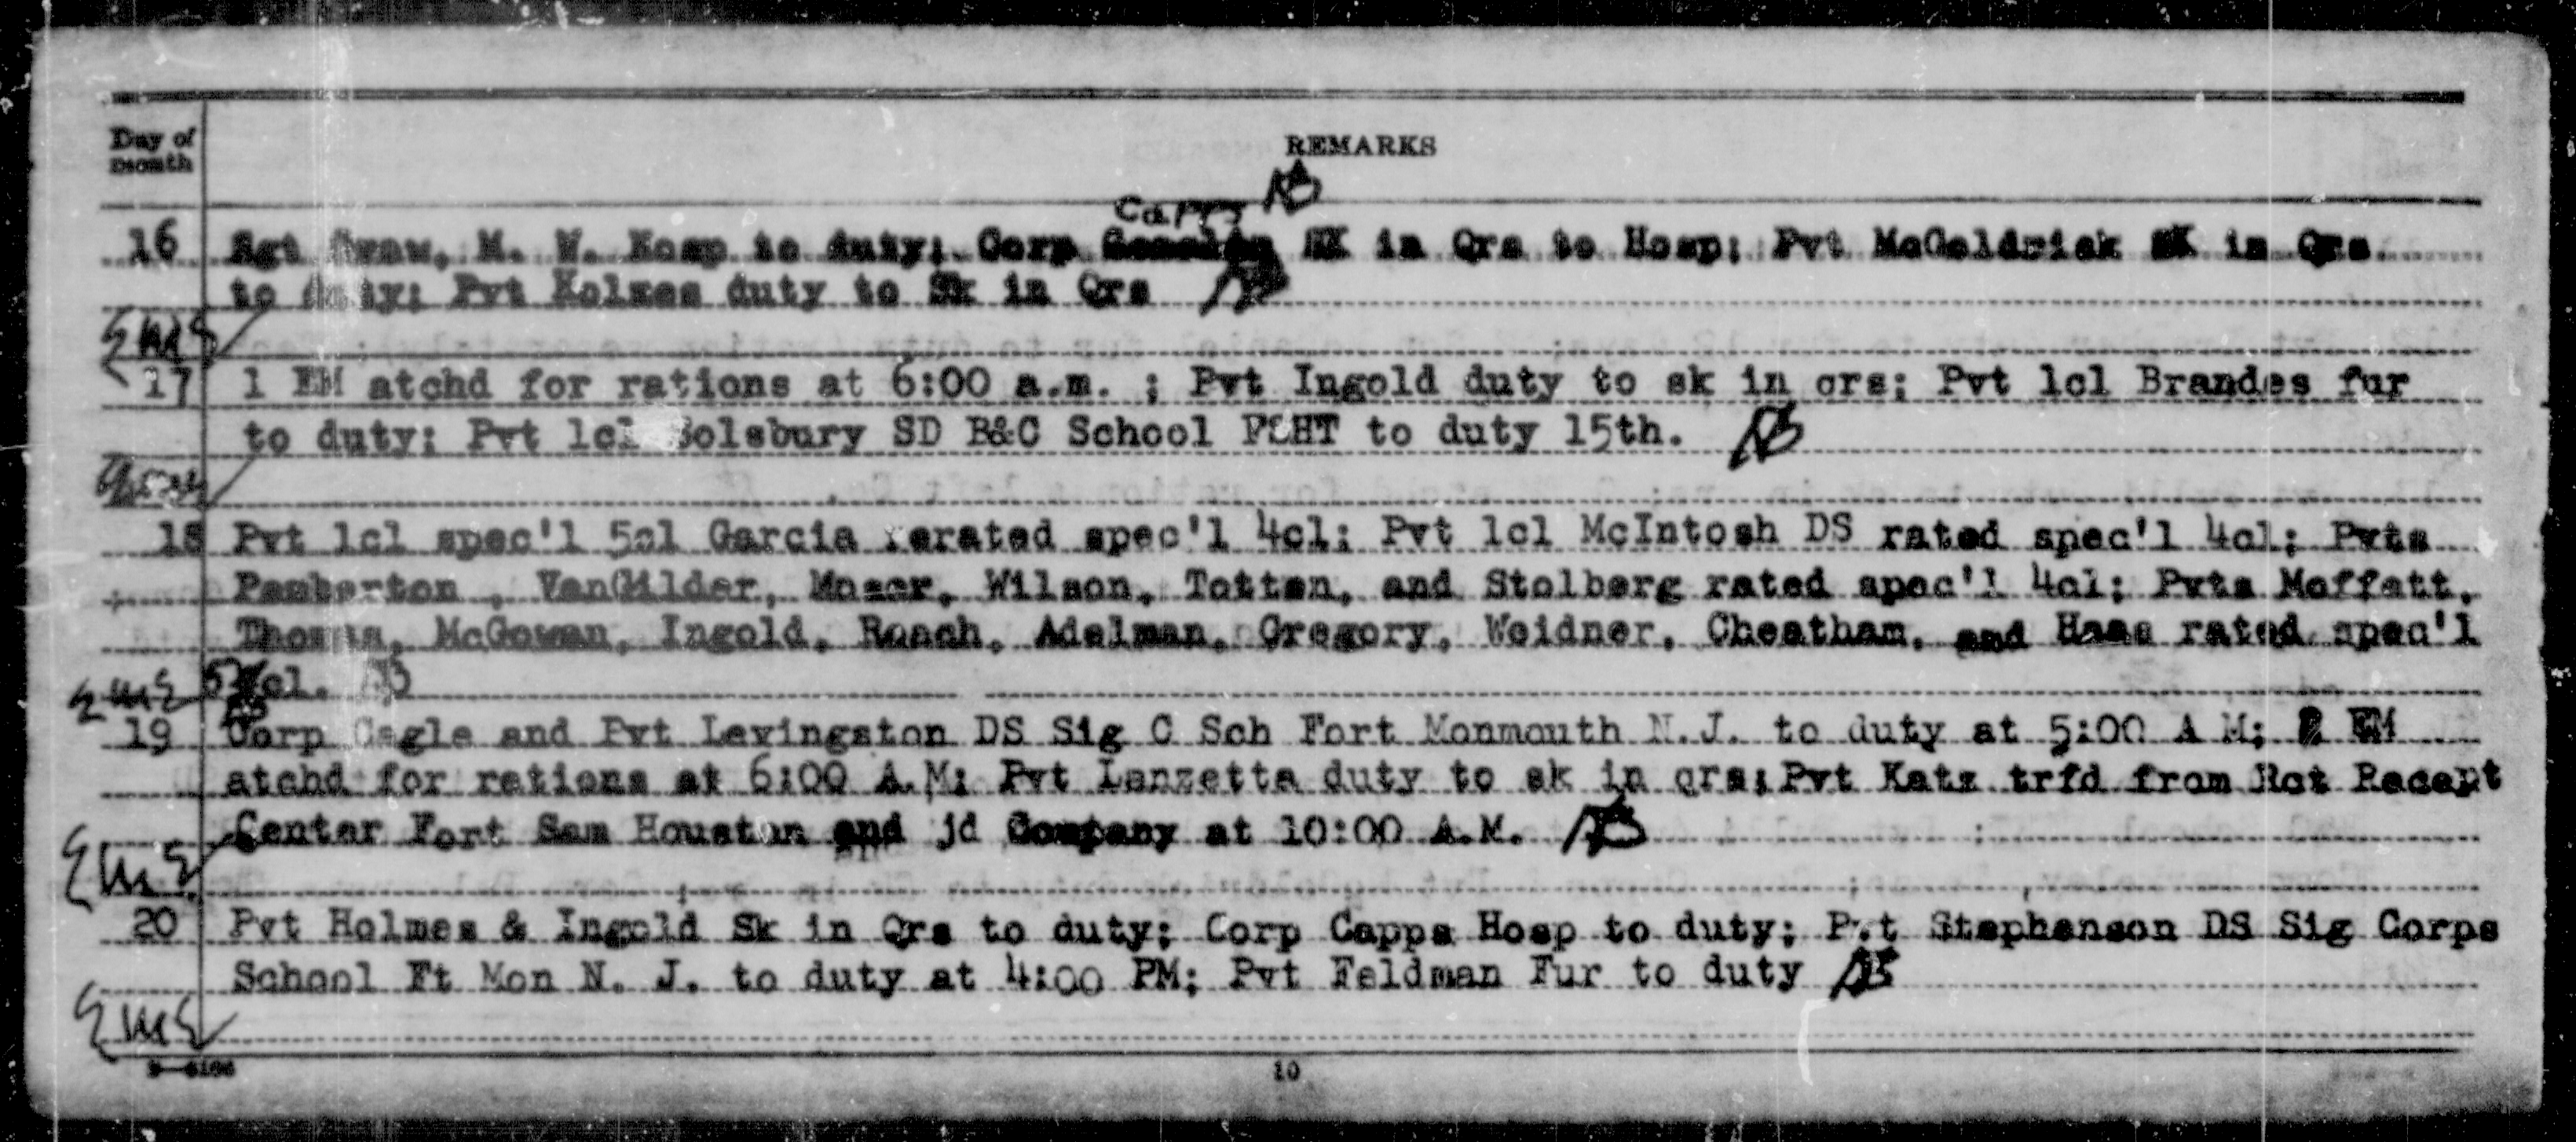 Day of Month
REMARKS
Capps
16 Sgt M. W. Hosp to duty; Corp SK in Qrs to Hosp; Pvt McGoldrick SK in Qrs.
to duty; Pvt Holmes duty to Sk in Qrs
EMS
17 1 EM atchd for rations at 6:00 a.m. ; Pvt Ingold duty to sk in qrs; Pvt 1cl Brandes fur
to duty; Pvt 1cl Solsbury SD B&C School FSHT to duty 15th.
18 Pvt 1cl spec'l 5cl Garcia rerated spec'l 4cl; Pvt 1cl McIntosh DS rated spec'l 4cl; Pvts
Pemberton , VanGilder, Moser, Wilson, Totten, and Stolberg rated spec'l 4cl; Pvts Moffatt,
Thomas, McGowan, Ingold, Roach, Adelman, Gregory, Weidner, Cheatham, and Haas rated spec'l
EMS 5 cl.
19 Corp Cagle and Pvt Levingston DS Sig C Sch Fort Monmouth N.J. to duty at 5:00 A M; 2 EM
atchd for rations at 6:00 A.M; Pvt Lanzetta duty to sk in qrs; Pvt Katz trfd from Rct Recept
Center Fort Sam Houston and jd Company at 10:00 A.M.
EMS
20 Pvt Holmes & Ingold Sk in Qrs to duty; Corp Capps Hosp to duty; Pvt Stephenson DS Sig Corps
School Ft Mon N. J. to duty at 4:00 PM; Pvt Feldman Fur to duty
EMS
10